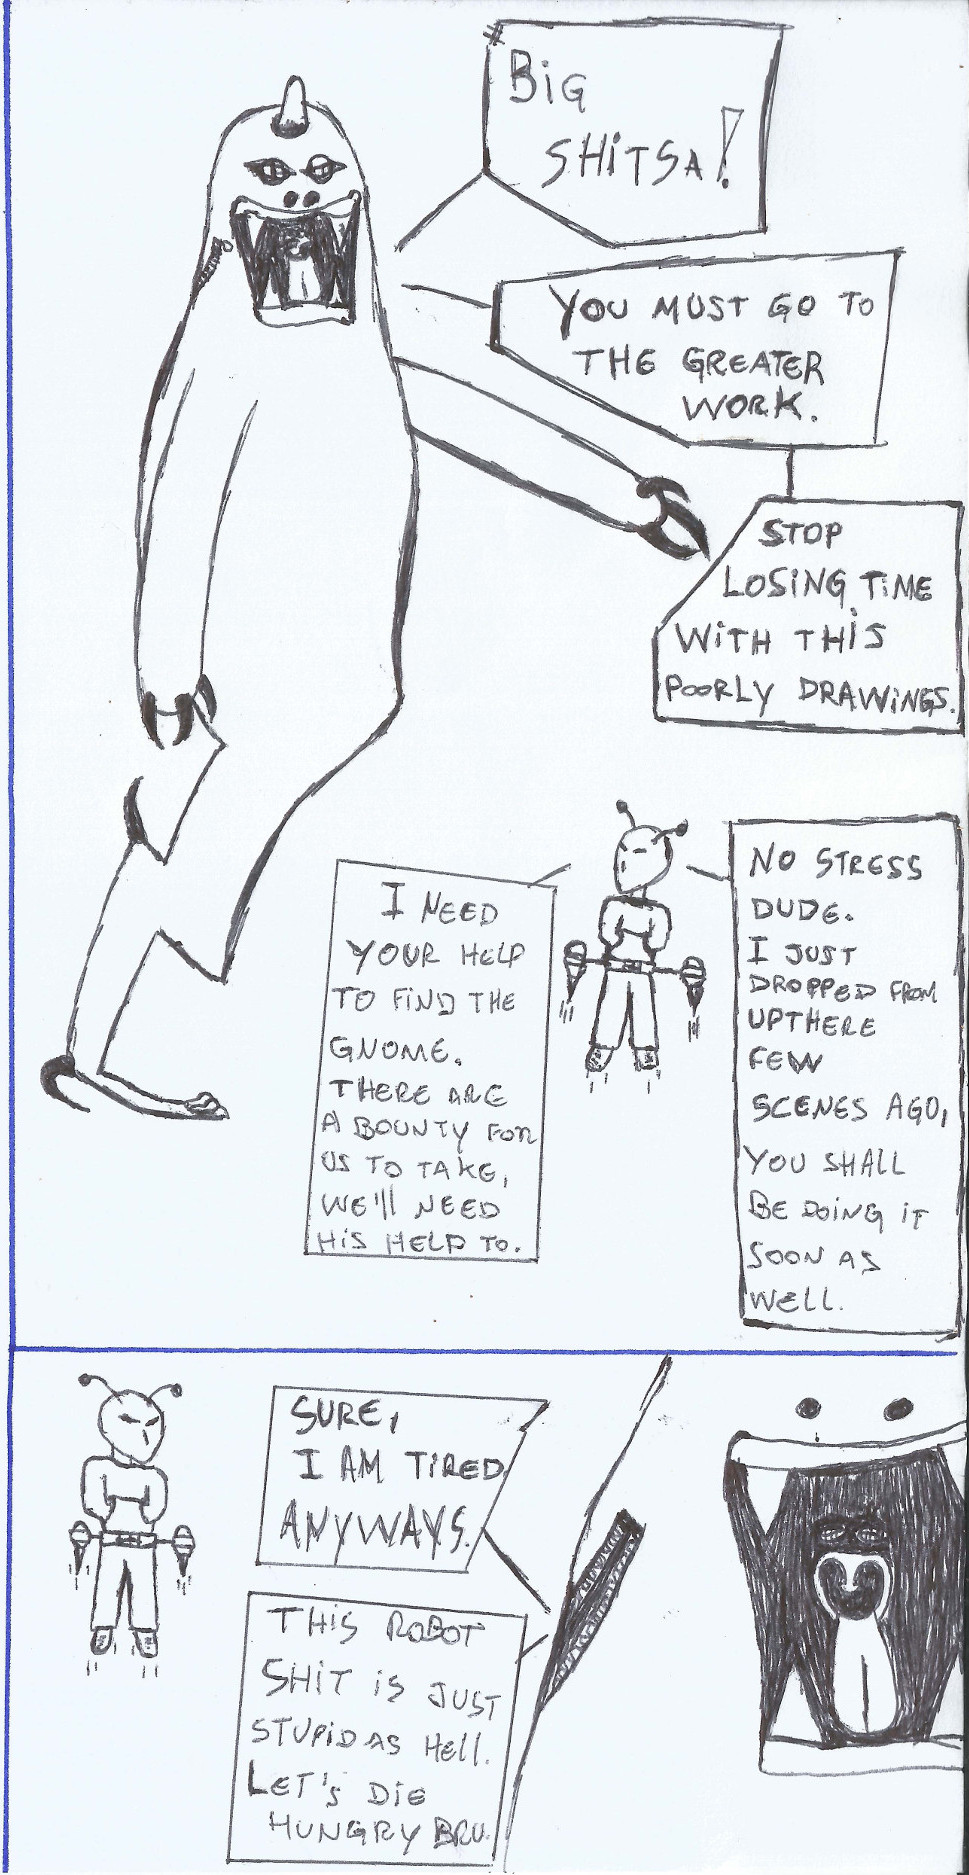 BiG
SHiTSA!
YOU MUST GO TO
THE GREATER
WORK.
STOP
LOSING TiME
WiTH THiS
POORLY DRAWiNGS.
I NEED
YOUR HELP
TO FiND THE
GNOME.
THERE ARE
A BOUNTY FOR
US TO TAKE,
WE'll NEED
HiS HELP TO.
NO STRESS
DUDE.
I JUST
DROPPED FROM
UPTHERE
FEW
SCENES AGO,
YOU SHALL
BE DOiNG iT
SOON AS
WELL.
SURE,
I AM TiRED
ANYWAYS.
THiS ROBOT
SHiT iS JUST
STUPiD AS HEll.
LET'S DiE
HUNGRY BRU.